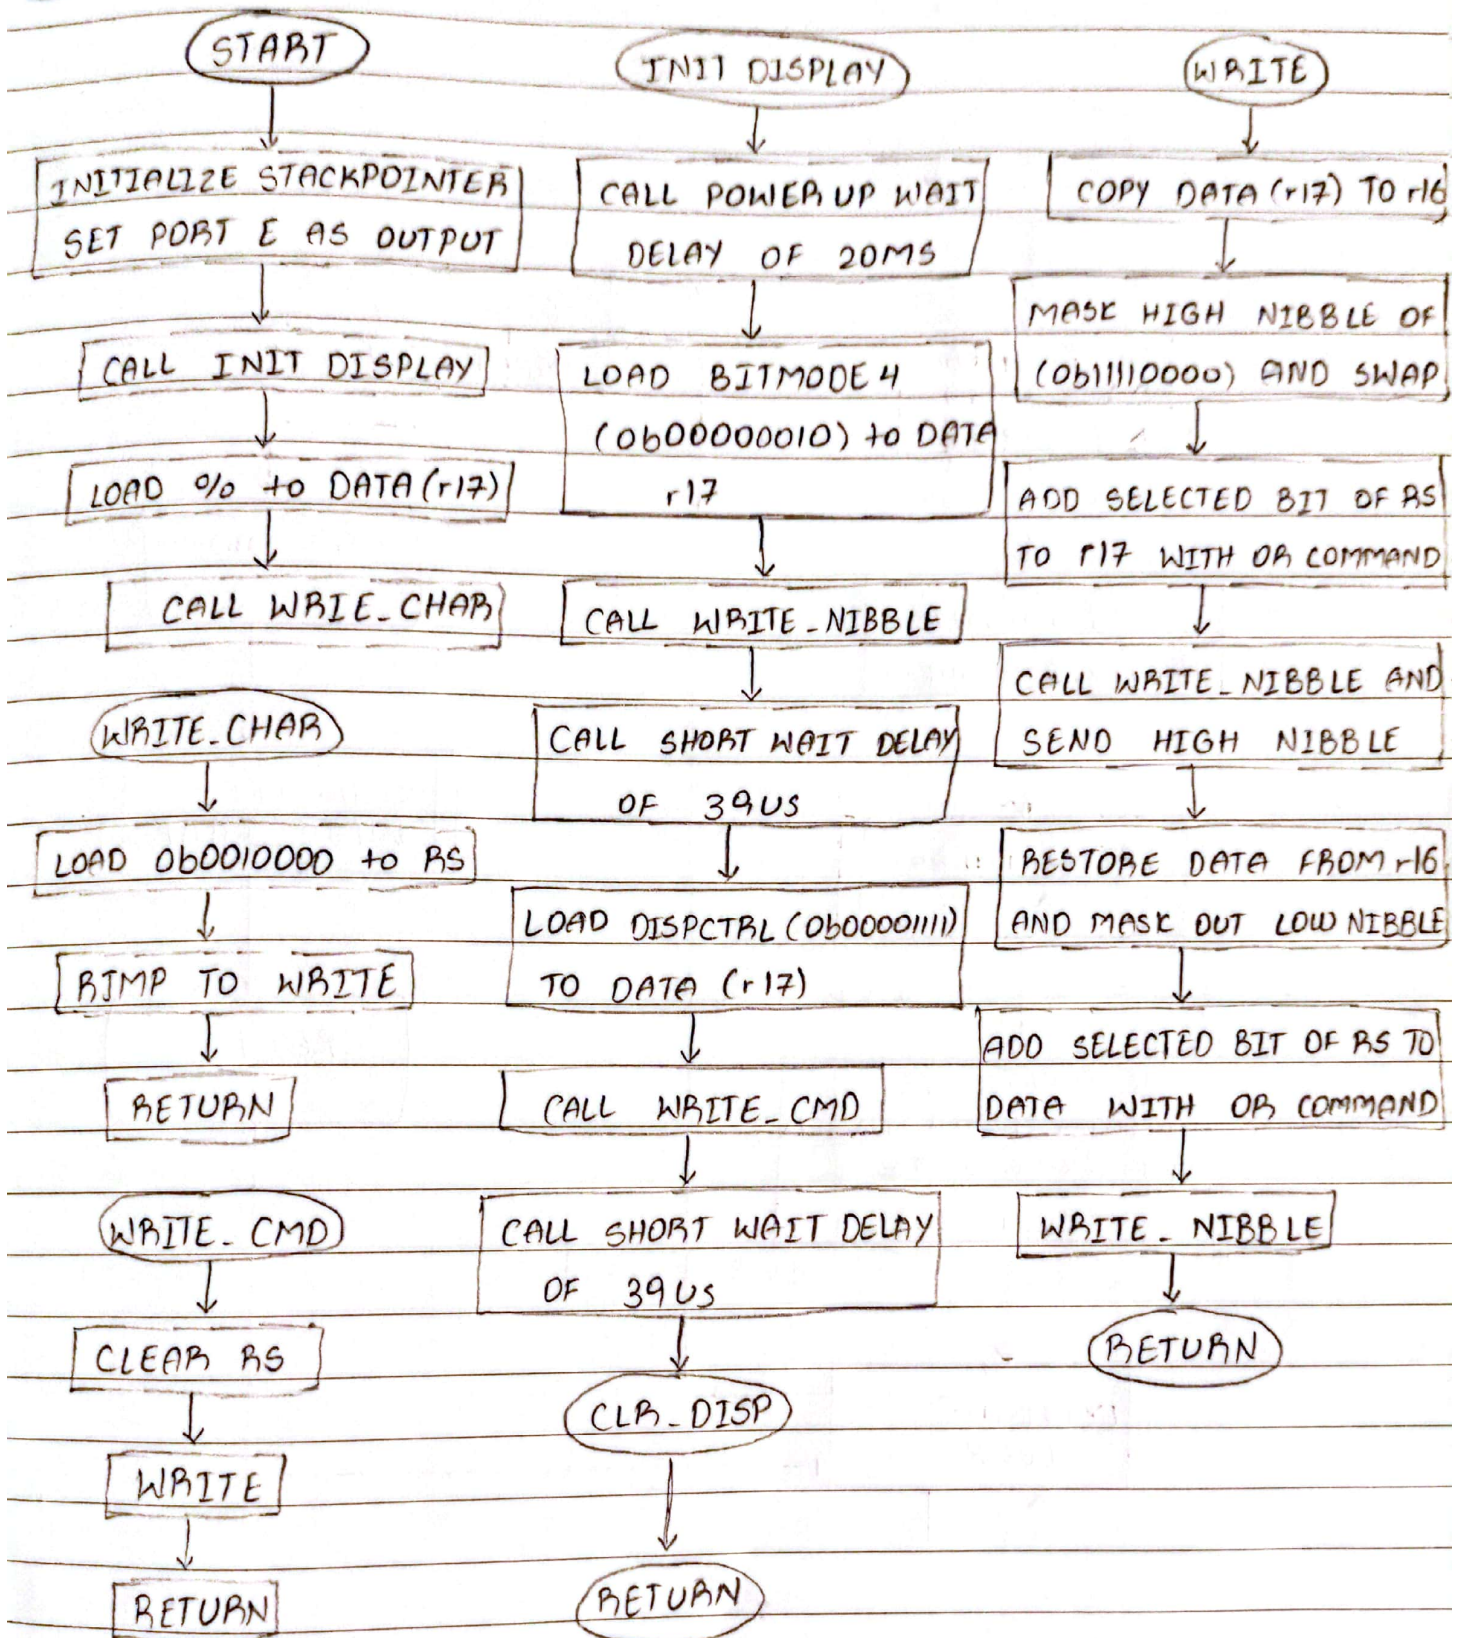 START
INITIALIZE STACKPOINTER
SET PORT E AS OUTPUT
CALL INIT DISPLAY
LOAD % to DATA (r17)
CALL WRIE_CHAR
WRITE_CHAR
LOAD 0b0010000 to RS
RJMP TO WRITE
RETURN
WRITE_CMD
CLEAR RS
WRITE
RETURN
INIT DISPLAY
CALL POWER UP WAIT
DELAY OF 20MS
LOAD BITMODE 4
(0b00000010) to DATA
r17
CALL WRITE_NIBBLE
CALL SHORT WAIT DELAY
OF 39US
LOAD DISPCTRL (0b00001111)
TO DATA (r17)
CALL WRITE_CMD
CALL SHORT WAIT DELAY
OF 39US
CLR_DISP
RETURN
WRITE
COPY DATA (r17) TO r16
MASK HIGH NIBBLE OF
(0b11110000) AND SWAP
ADD SELECTED BIT OF RS
TO r17 WITH OR COMMAND
CALL WRITE_NIBBLE AND
SEND HIGH NIBBLE
RESTORE DATA FROM r16
AND MASK OUT LOW NIBBLE
ADD SELECTED BIT OF RS TO
DATA WITH OR COMMAND
WRITE_NIBBLE
RETURN